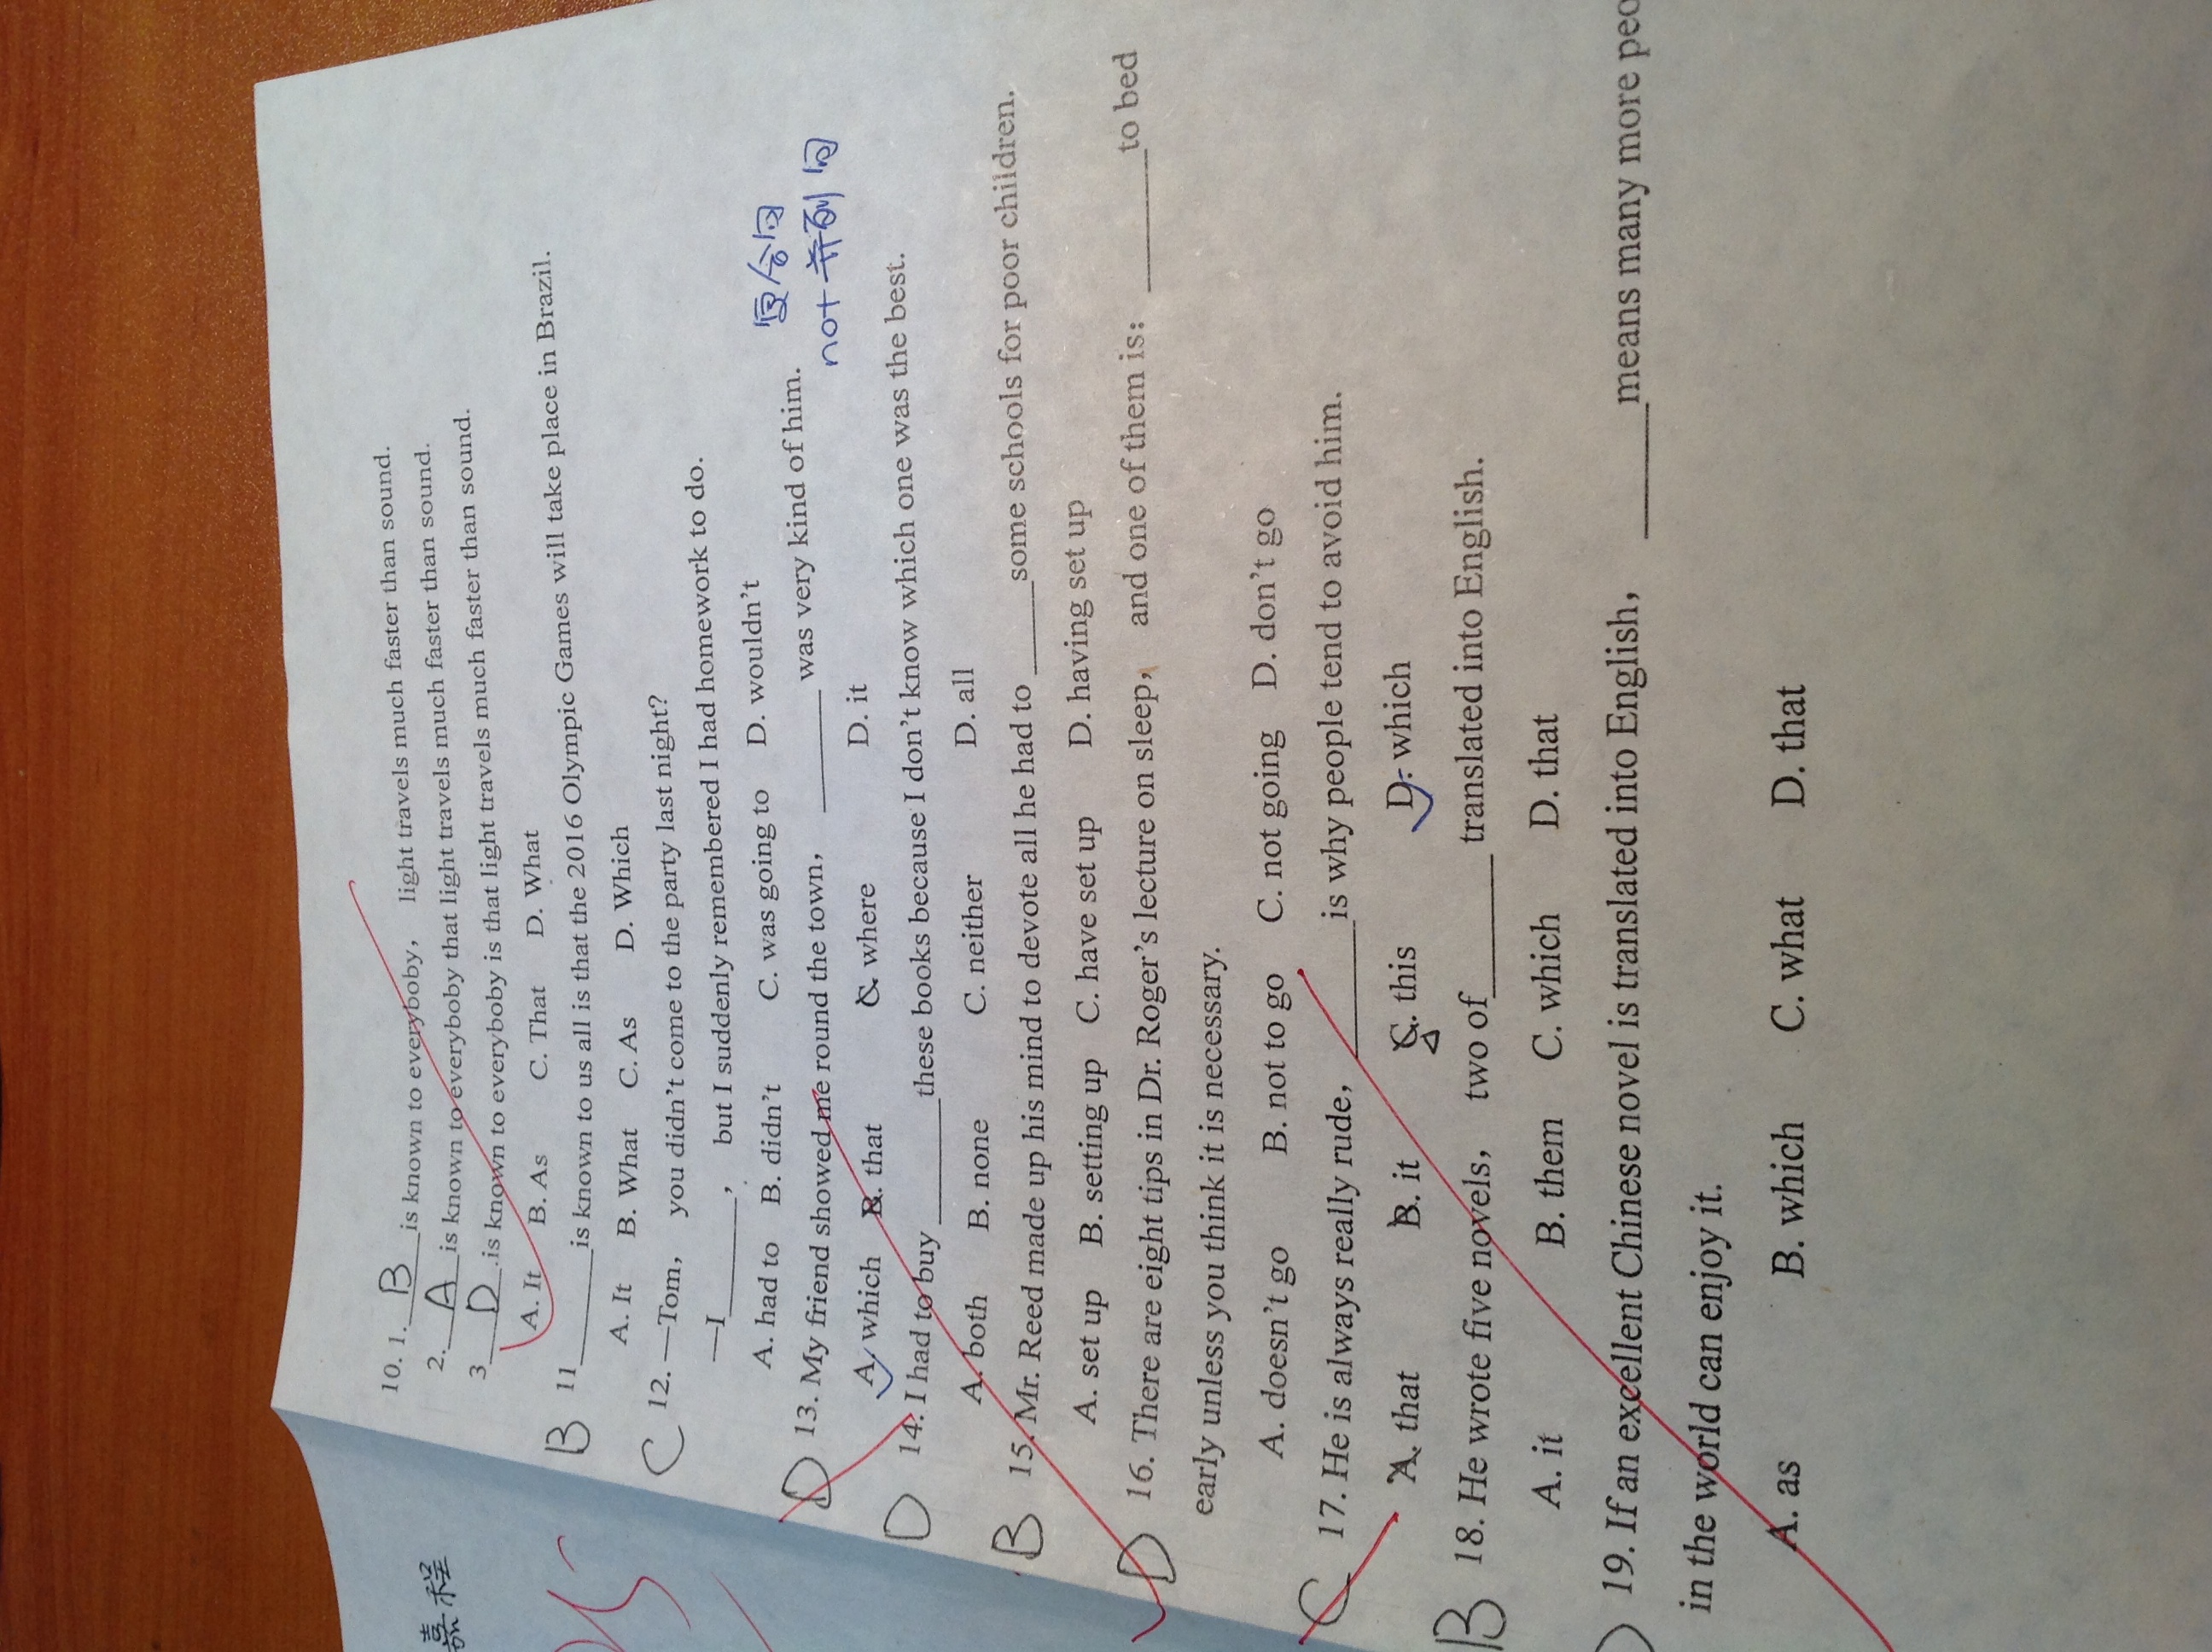 嘉程
10. 1. B is known to everyboby, light travels much faster than sound.
2. A is known to everyboby that light travels much faster than sound.
3 D .is known to everyboby is that light travels much faster than sound.
A. It B. As C. That D. What
B 11______is known to us all is that the 2016 Olympic Games will take place in Brazil.
A. It B. What C. As D. Which
C 12. —Tom, you didn't come to the party last night?
—I______, but I suddenly remembered I had homework to do.
A. had to B. didn't C. was going to D. wouldn't
复合句
D 13. My friend showed me round the town, ______ was very kind of him.
not 并列句
A. which B. that C. where D. it
D 14. I had to buy ______these books because I don't know which one was the best.
A. both B. none C. neither D. all
B 15. Mr. Reed made up his mind to devote all he had to _____some schools for poor children.
A. set up B. setting up C. have set up D. having set up
D 16. There are eight tips in Dr. Roger's lecture on sleep, and one of them is: _______to bed
early unless you think it is necessary.
A. doesn't go B. not to go C. not going D. don't go
C 17. He is always really rude, ______is why people tend to avoid him.
A. that B. it C. this D. which
B 18. He wrote five novels, two of______ translated into English.
A. it B. them C. which D. that
19. If an excellent Chinese novel is translated into English, ______means many more
in the world can enjoy it.
A. as B. which C. what D. that